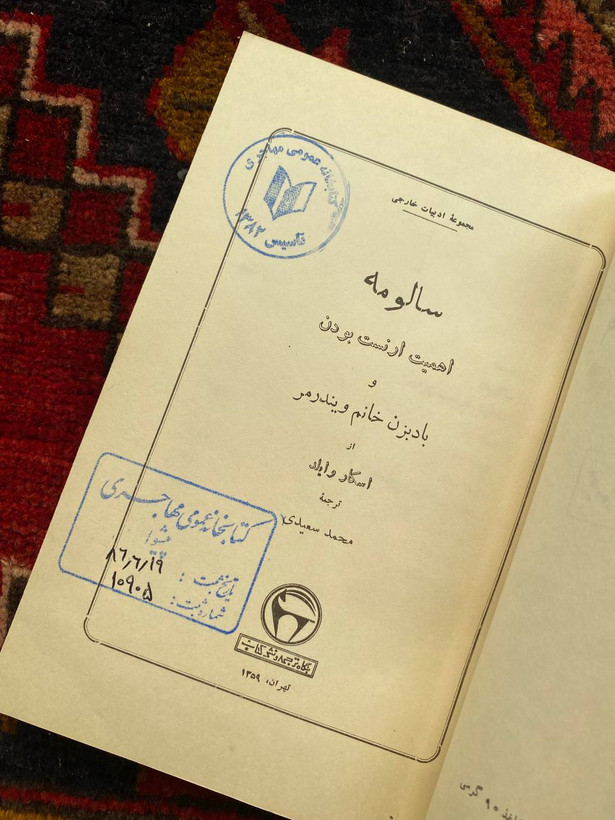 مجموعهٔ ادبیات خارجی
سالومه
اهمیت ارنست بودن
و
بادبزن خانم ویندرمر
از
اسکار وایلد
ترجمهٔ
محمد سعیدی
بنگاه ترجمه و نشر کتاب
تهران، ۱۳۵۹
کتابخانه عمومی مهاجری
تاسیس ۱۳۸۲
کتابخانه عمومی مهاجری
پیشوا
تاریخ ثبت: ۸۶/۶/۱۹
شماره ثبت: ۱۰۹۰۵
۹۰ گرمی